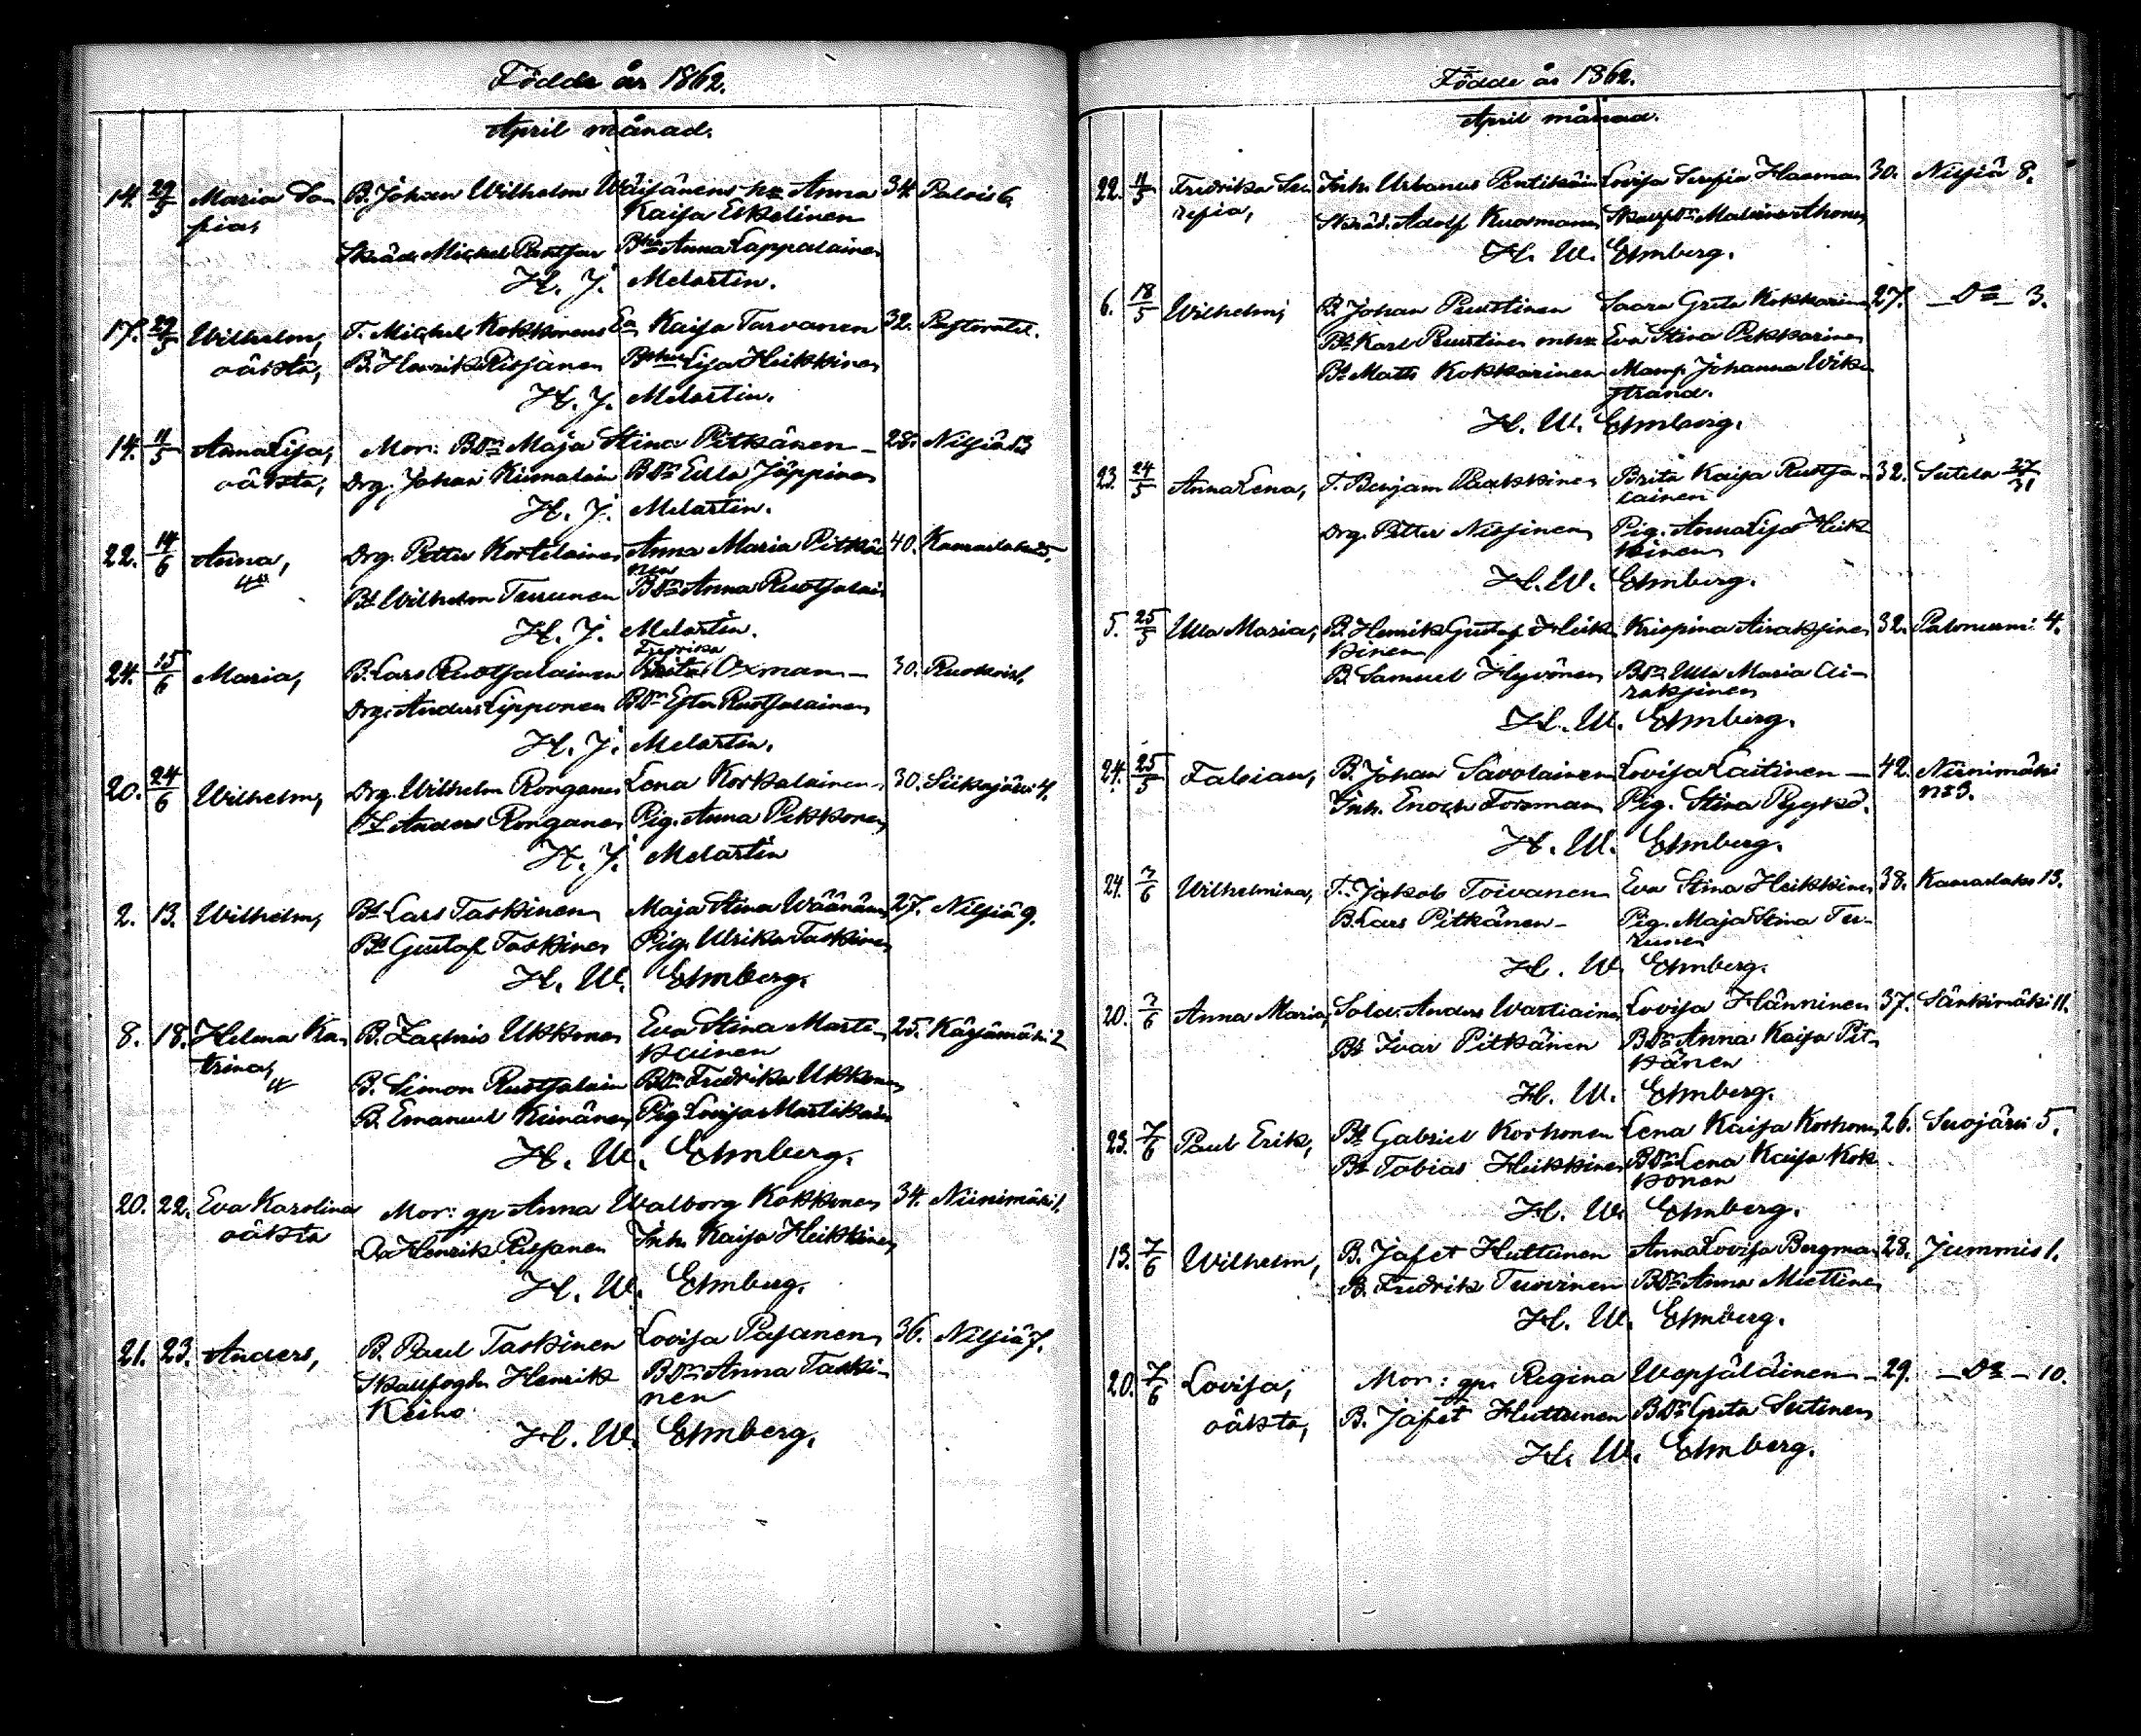 Födde år 1862.
April månad.
14. 29/5 Maria So- B. Johan Wilhelm Wäisänens h:u Anna 34. Palois 6.
fia, Kaisa Eskelinen
Skräd. Michel B:hu Anna Lappalainen
H. J. Melartin.
17. 29/5 Wilhelm, T. Michel Kokkonens E:a Kaisa Tarvanen 32. Pastoratet.
oäkta, B. Henrik Pitkänen Lisa Heikkinen
H. J. Melartin.
14. 11/5 Anna Lisa, Mor: BDr Maja Stina Pitkänen - 28. Nilsiä 13
oäkta, Drg. Johan BDr Ulla Jäppinen
H. J. Melartin.
22. 14/6 Anna, Drg. Petter Kortelainen Anna Maria Pitkä- 40. Kaaraslaks 5.
nen
Bs Wilhelm Turunen BDr Anna Ruotsalain
H. J. Melartin.
Fredrika
24. 15/6 Maria, B. Lars Ruotsalainen Oxman - 30. Ruokois 1.
Drg. Anders Lipponen BDr Ester Ruotsalainen
H. J. Melartin.
20. 24/6 Wilhelm, Drg. Wilhelm Ronganen Lena Korkalainen 30. Siikajärvi 4.
Anders Ronganen Pig. Anna Pekkonen
H. J. Melartin
2. 13. Wilhelm, Bs Lars Taskinen Maja Stina Wäänänen 27. Nilsiä 9.
Bs Gustaf Taskinen Pig. Ulrika Taskinen
H. W. Elmberg.
8. 18. Helena Ka- B. Zachris Ukkonen Eva Stina Marti- 25. Käräjämäki 2
trina, kainen
B. Simon Ruotsalain BDr Fredrika Ukkonen
B. Emanuel Keinänen Pig. Lovisa Martikain
H. W. Elmberg.
20. 22. Eva Karolina Mor: gp Anna Walborg Kokkonen 34. Niinimäki 1.
oäkta Henrik Inh. Kaisa Heikkinen
H. W. Elmberg.
21. 23. Anders, B. Paul Taskinen Lovisa Pasanen 36. Nilsiä 7.
Skallfogden Henrik BDr Anna Taski-
Keino nen
H. W. Elmberg.
Födde år 1862.
April månad.
22. 11/5 Fredrika Se- Inh. Urbanus Pentikäin Lovisa Serafia Haaman 30. Nilsiä 8.
rafia, Skräd. Adolf Kuosmanen
H. W. Elmberg.
6. 18/5 Wilhelm, B. Johan Puustinen Saara Greta Kokkarinen 27. - Do - 3.
Bs Karl Puustinen m hu Eva Stina Pekkarinen
Bs Matts Kokkarinen Mamp. Johanna Wik-
strand.
H. W. Elmberg.
23. 24/5 Anna Lena, T. Benjam Parkkinen Brita Kaisa Ruotsa- 32. Sutela 27/31
lainen
Drg. Petter Nissinen Pig. Anna Lisa Heik-
kinen
H. W. Elmberg.
5. 25/5 Ulla Maria, B. Henrik Gustaf Heik- Krispina Airaksinen 32. Palonurmi 4.
kinen
B. Samuel Hyvönen BDr Ulla Maria Ai-
raksinen
H. W. Elmberg.
24. 25/5 Fabian, B. Johan Savolainen Lovisa Laitinen - 42. Niinimäki
Inh. Enoch Forsman Pig. Stina Pyykö. no 3.
H. W. Elmberg.
24. 7/6 Wilhelmina, T. Jakob Toivanen Eva Stina Heikkinen 38. Kaaraslaks 13.
B. Lars Pitkänen - Pig. Maja Stina Tu-
runen
H. W. Elmberg.
20. 7/6 Anna Maria, Sold. Anders Wartiainen Lovisa Hänninen 37. Sänkimäki 11.
Bs Ivar Pitkänen BDr Anna Kaisa Pit-
känen
H. W. Elmberg.
23. 7/6 Paul Erik, Bs Gabriel Korhonen Lena Kaisa Korhonen 26. Suojärvi 5.
Bs Tobias Heikkinen BDr Lena Kaisa Kok-
konen
H. W. Elmberg.
13. 7/6 Wilhelm, B. Jafet Huttunen Anna Lovisa Bergman 28. Jummis 1.
B. Fredrik Tuovinen BDr Anna Miettinen
H. W. Elmberg.
20. 7/6 Lovisa, Mor: gp. Regina Wepsäläinen - 29. - Do - 10.
oäkta, B. Jafet Huttunen BDr Greta Sutinen
H. W. Elmberg.